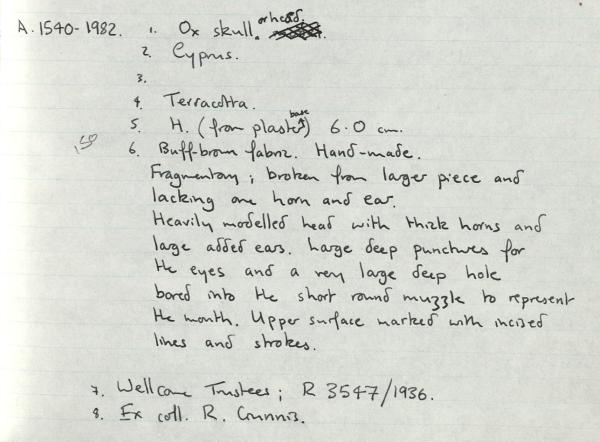 A.1540-1982. 1. Ox skull. or head.
2. Cyprus.
3.
4. Terracotta.
5. H. (from plaster base) 6.0 cm.
6. Buff-brown fabric. Hand-made.
Fragmentary; broken from larger piece and
lacking one horn and ear.
Heavily modelled head with thick horns and
large added ears. Large deep punctures for
the eyes and a very large deep hole
bored into the short round muzzle to represent
the mouth. Upper surface marked with incised
lines and strokes.
7. Wellcome Trustees; R 3547/1936.
8. Ex coll. R. Gunnis.